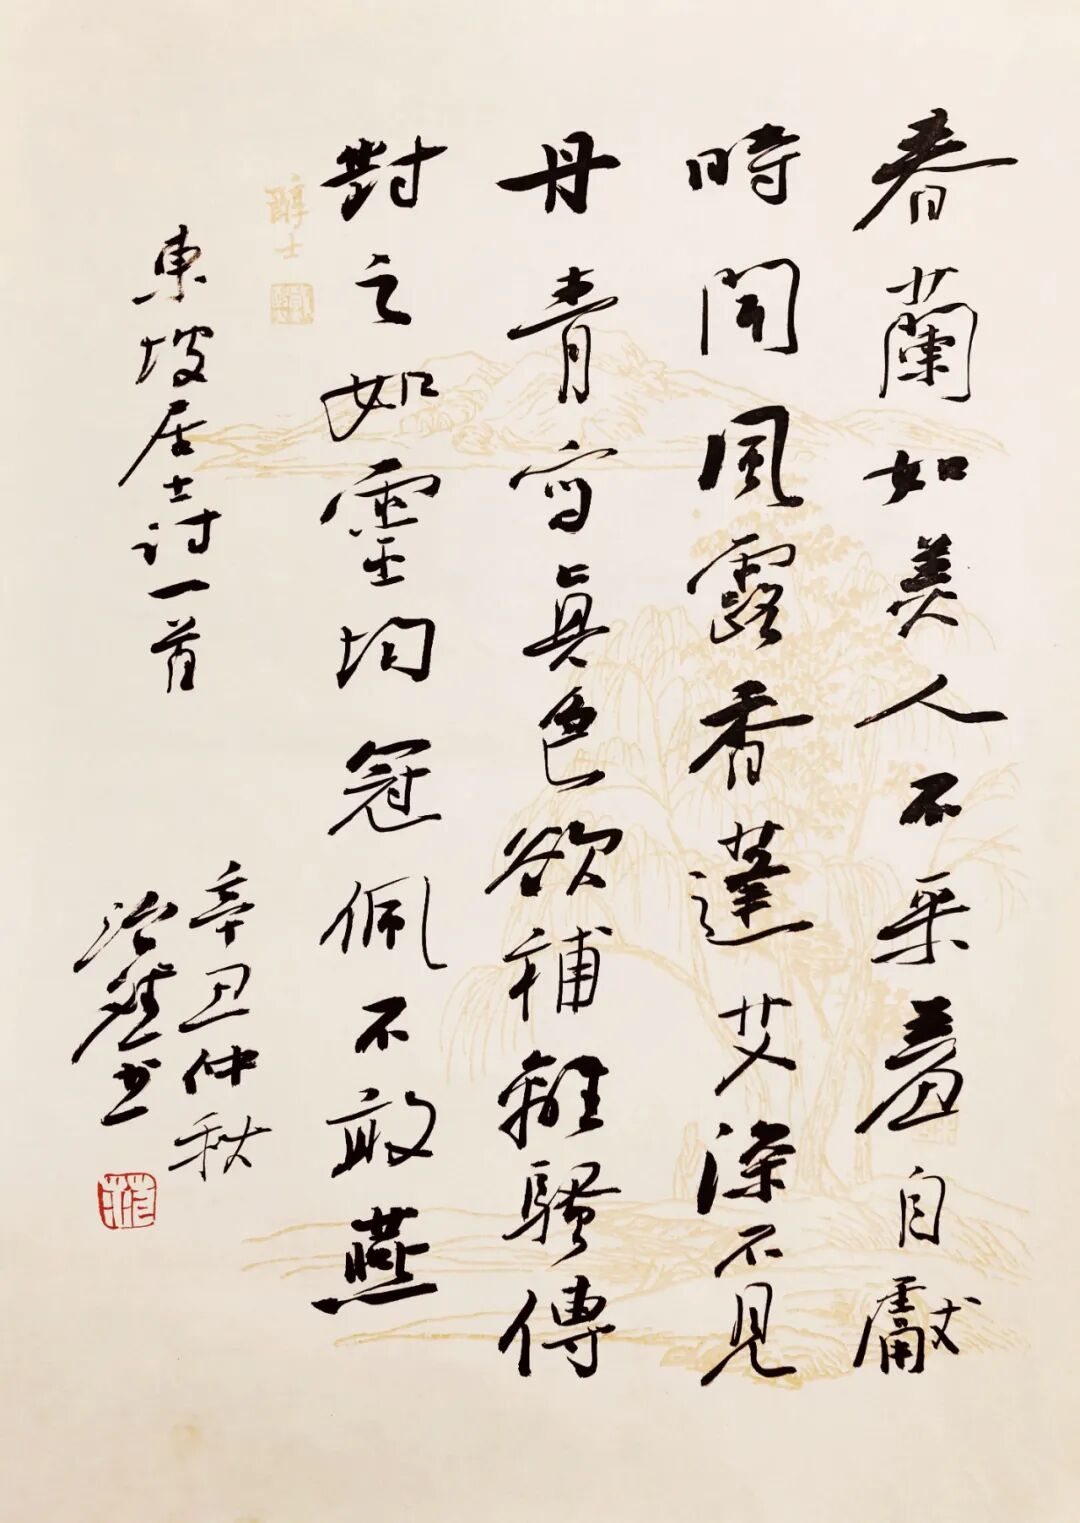 春蘭如美人不采羞自獻
時聞風露香蓬艾深不見
丹青寫眞色欲補離騷傳
對之如靈均冠佩不敢燕
醇士
東坡居士詩一首
辛丑仲秋
治書